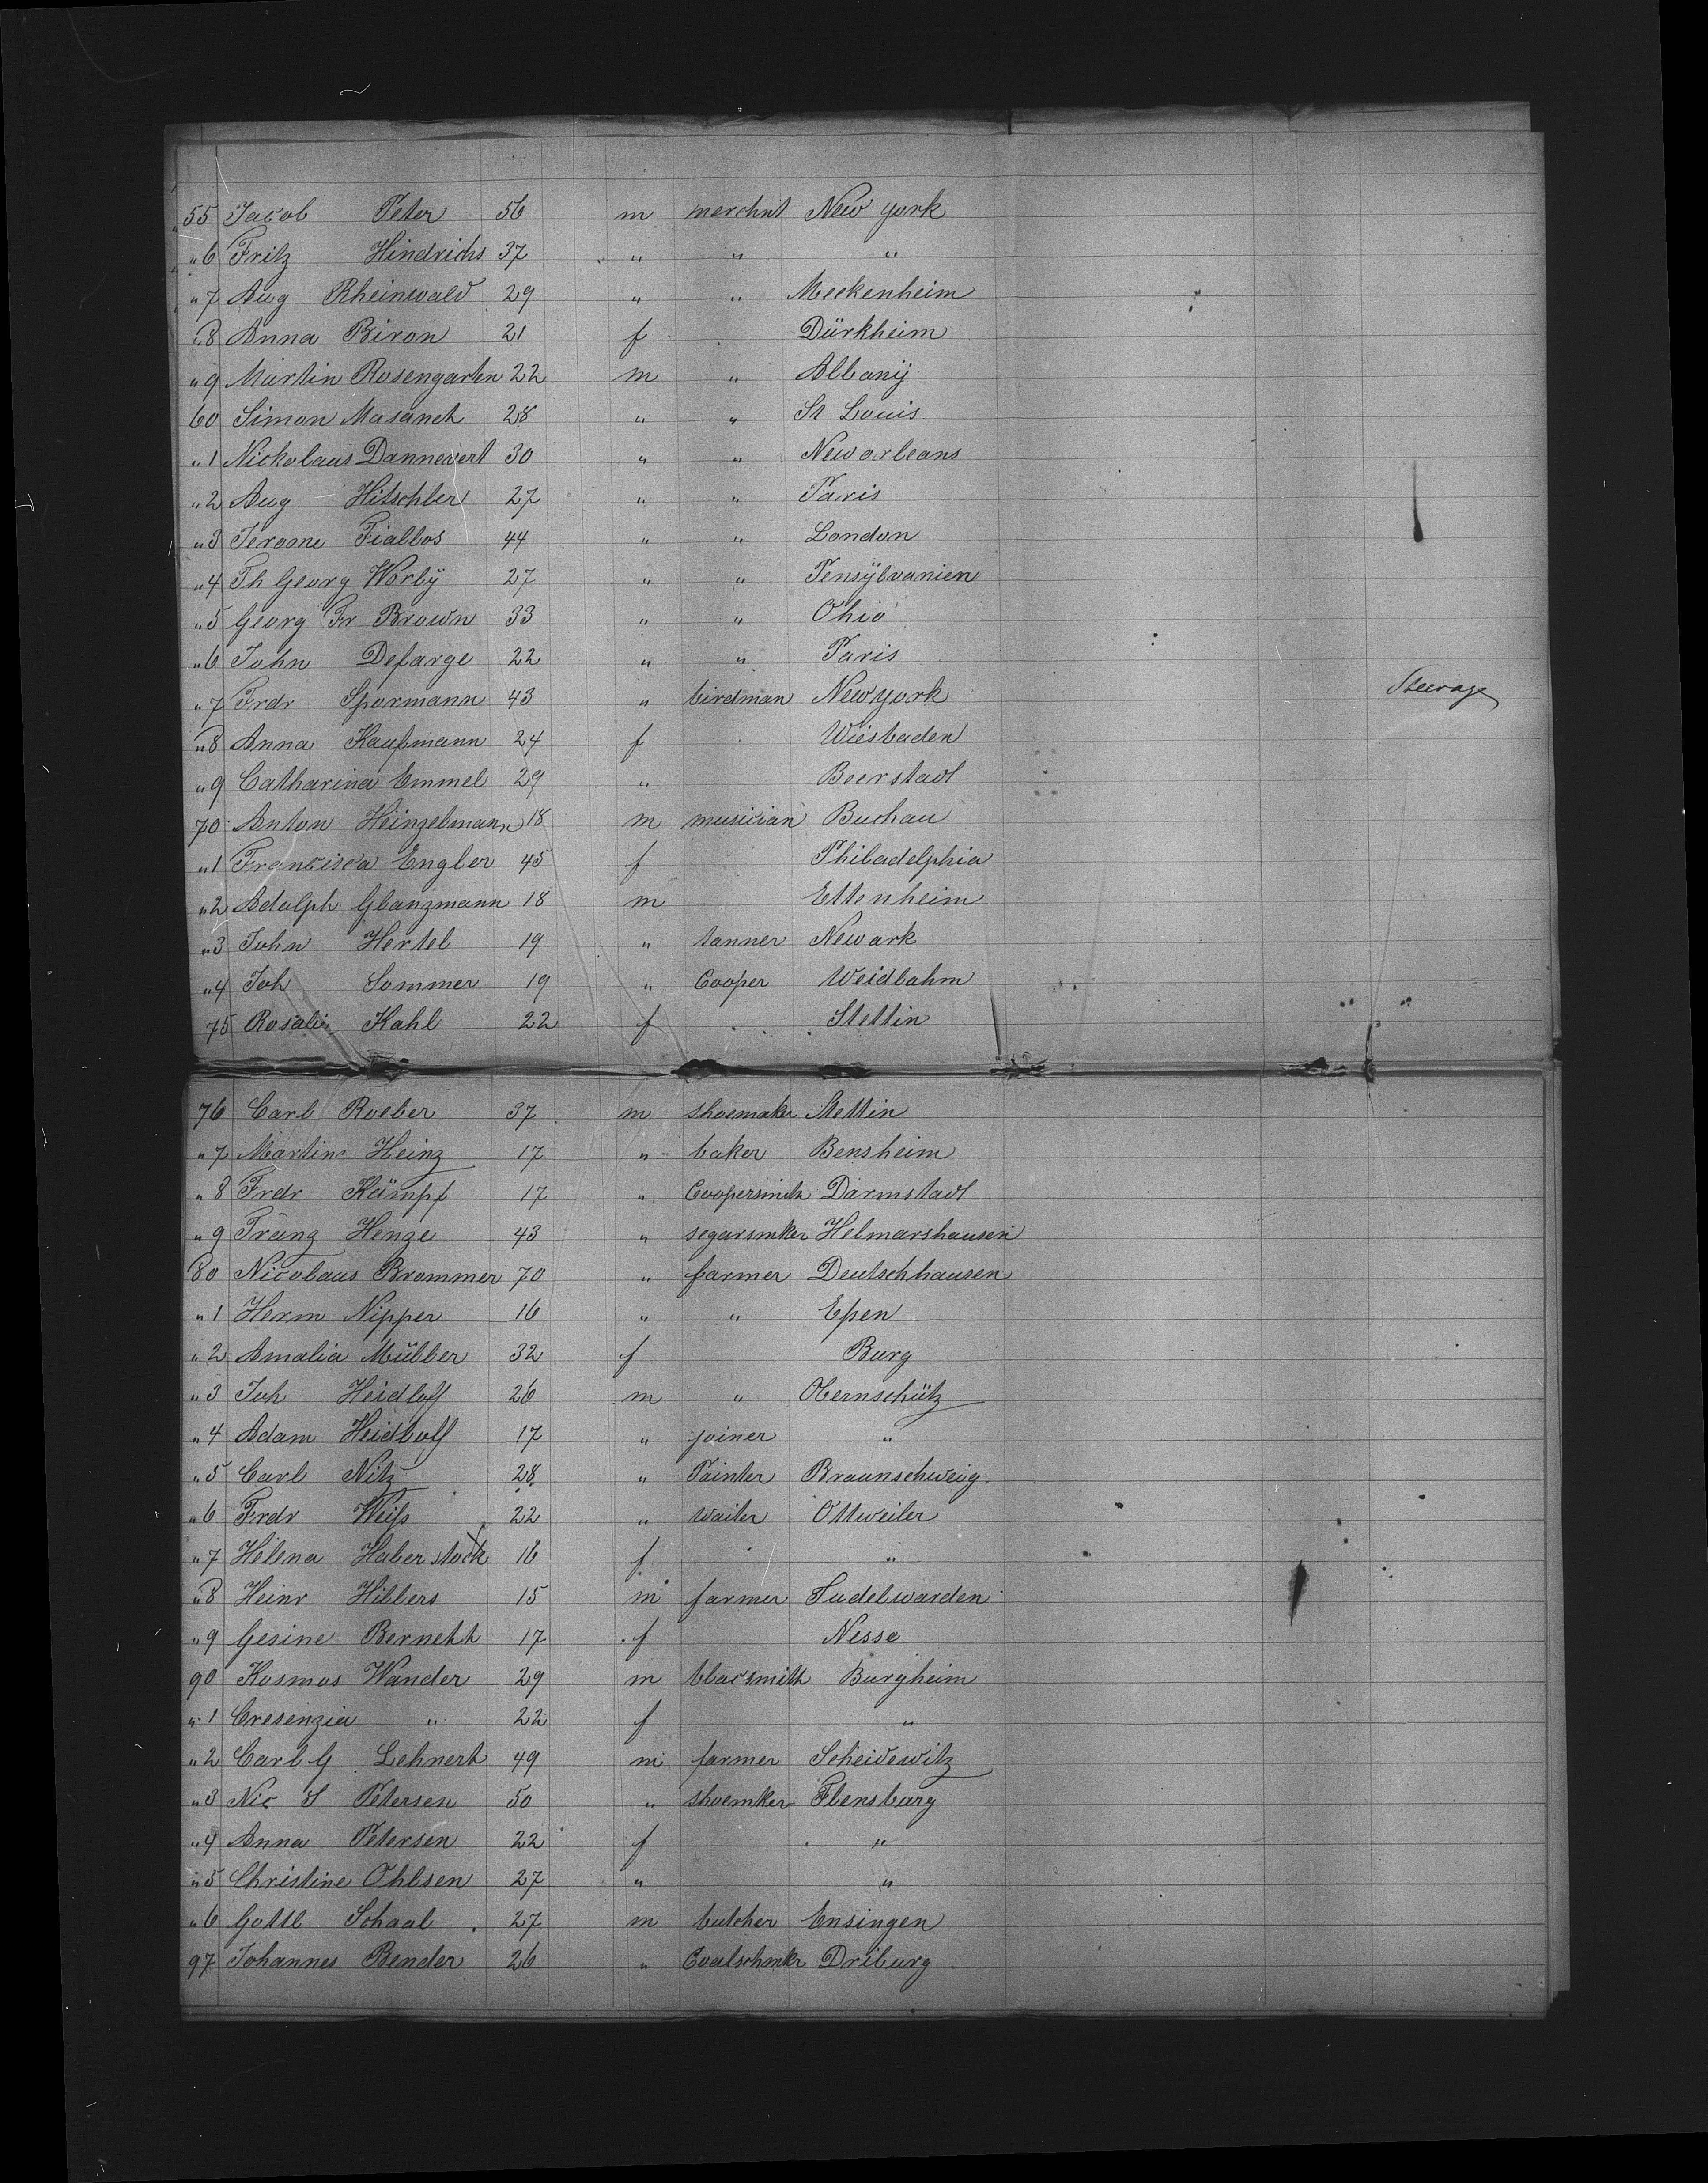 55 Jacob Peter 56 m merchnt New York
"6 Fritz Hindrichs 37 " " "
"7 Aug Rheinwald 29 " " Meckenheim
"8 Anna Biron 21 f Dürkheim
"9 Martin Rosengarten 22 m " Albany
60 Simon Masanek 28 " " St Louis
"1 Nickolaus Dannewert 30 " " New orleans
"2 Aug Hitschler 27 " " Paris
"3 Jerome Fiallos 44 " " London
"4 Th Georg Worby 27 " " Pensylvanien
"5 Georg Fr Brown 33 " " Ohio
"6 John Defarge 22 " " Paris
"7 Frdr Spormann 43 " birdman New york Steerage
"8 Anna Kaufmann 24 f Wiesbaden
"9 Catharina Emmel 29 " Beerstadt
70 Anton Heinzelmann 18 m musician Buchau
"1 Francisca Engler 45 f Philadelphia
"2 Adolph Glanzmann 18 m Ettenheim
"3 John Hertel 19 " tanner Newark
"4 Joh Sommer 19 " Cooper Weidbahm
75 Rosalie Kahl 22 f Stettin
76 Carl Roeber 37 m shoemaker Stettin
"7 Martin Heinz 17 " baker Bensheim
"8 Frdr Kämpf 17 " Coopersmith Darmstadt
"9 Franz Henze 43 " segarsmker Helmarshausen
80 Nicolaus Brommer 70 " farmer Deutschhausen
"1 Herm Nipper 16 " " Epen
"2 Amalia Müller 32 f Burg
"3 Joh Heidloff 26 m " Obernschütz
"4 Adam Heidloff 17 " joiner "
"5 Carl Nitz 28 " Painter Braunschweig
"6 Frdr Weiß 22 " waiter Ottweiler
"7 Helena Haberstock 16 f "
"8 Heinr Hibbers 15 m farmer Sudelwarden
"9 Gesine Bernett 17 f Nesse
90 Kosmos Wander 29 m blacsmith Burgheim
"1 Cresenzia " 22 f "
"2 Carl G Lehnert 49 m farmer Scheidewitz
"3 Nic S Petersen 50 " shoemker Flensburg
"4 Anna Petersen 22 f "
"5 Christine Ohlsen 27 " "
"6 Gottl Schaal 27 m butcher Ensingen
97 Johannes Bender 26 " Driburg